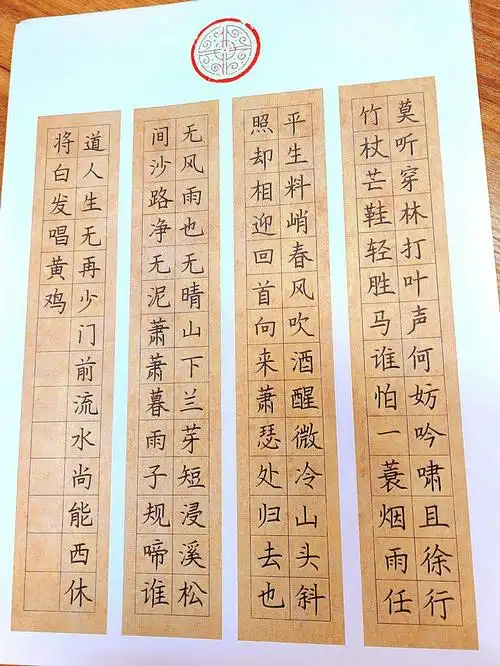 莫听穿林打叶声何妨吟啸且徐行
竹杖芒鞋轻胜马谁怕一蓑烟雨任
平生料峭春风吹酒醒微冷山头斜
照却相迎回首向来萧瑟处归去也
无风雨也无晴山下兰芽短浸溪松
间沙路净无泥萧萧暮雨子规啼谁
道人生无再少门前流水尚能西休
将白发唱黄鸡